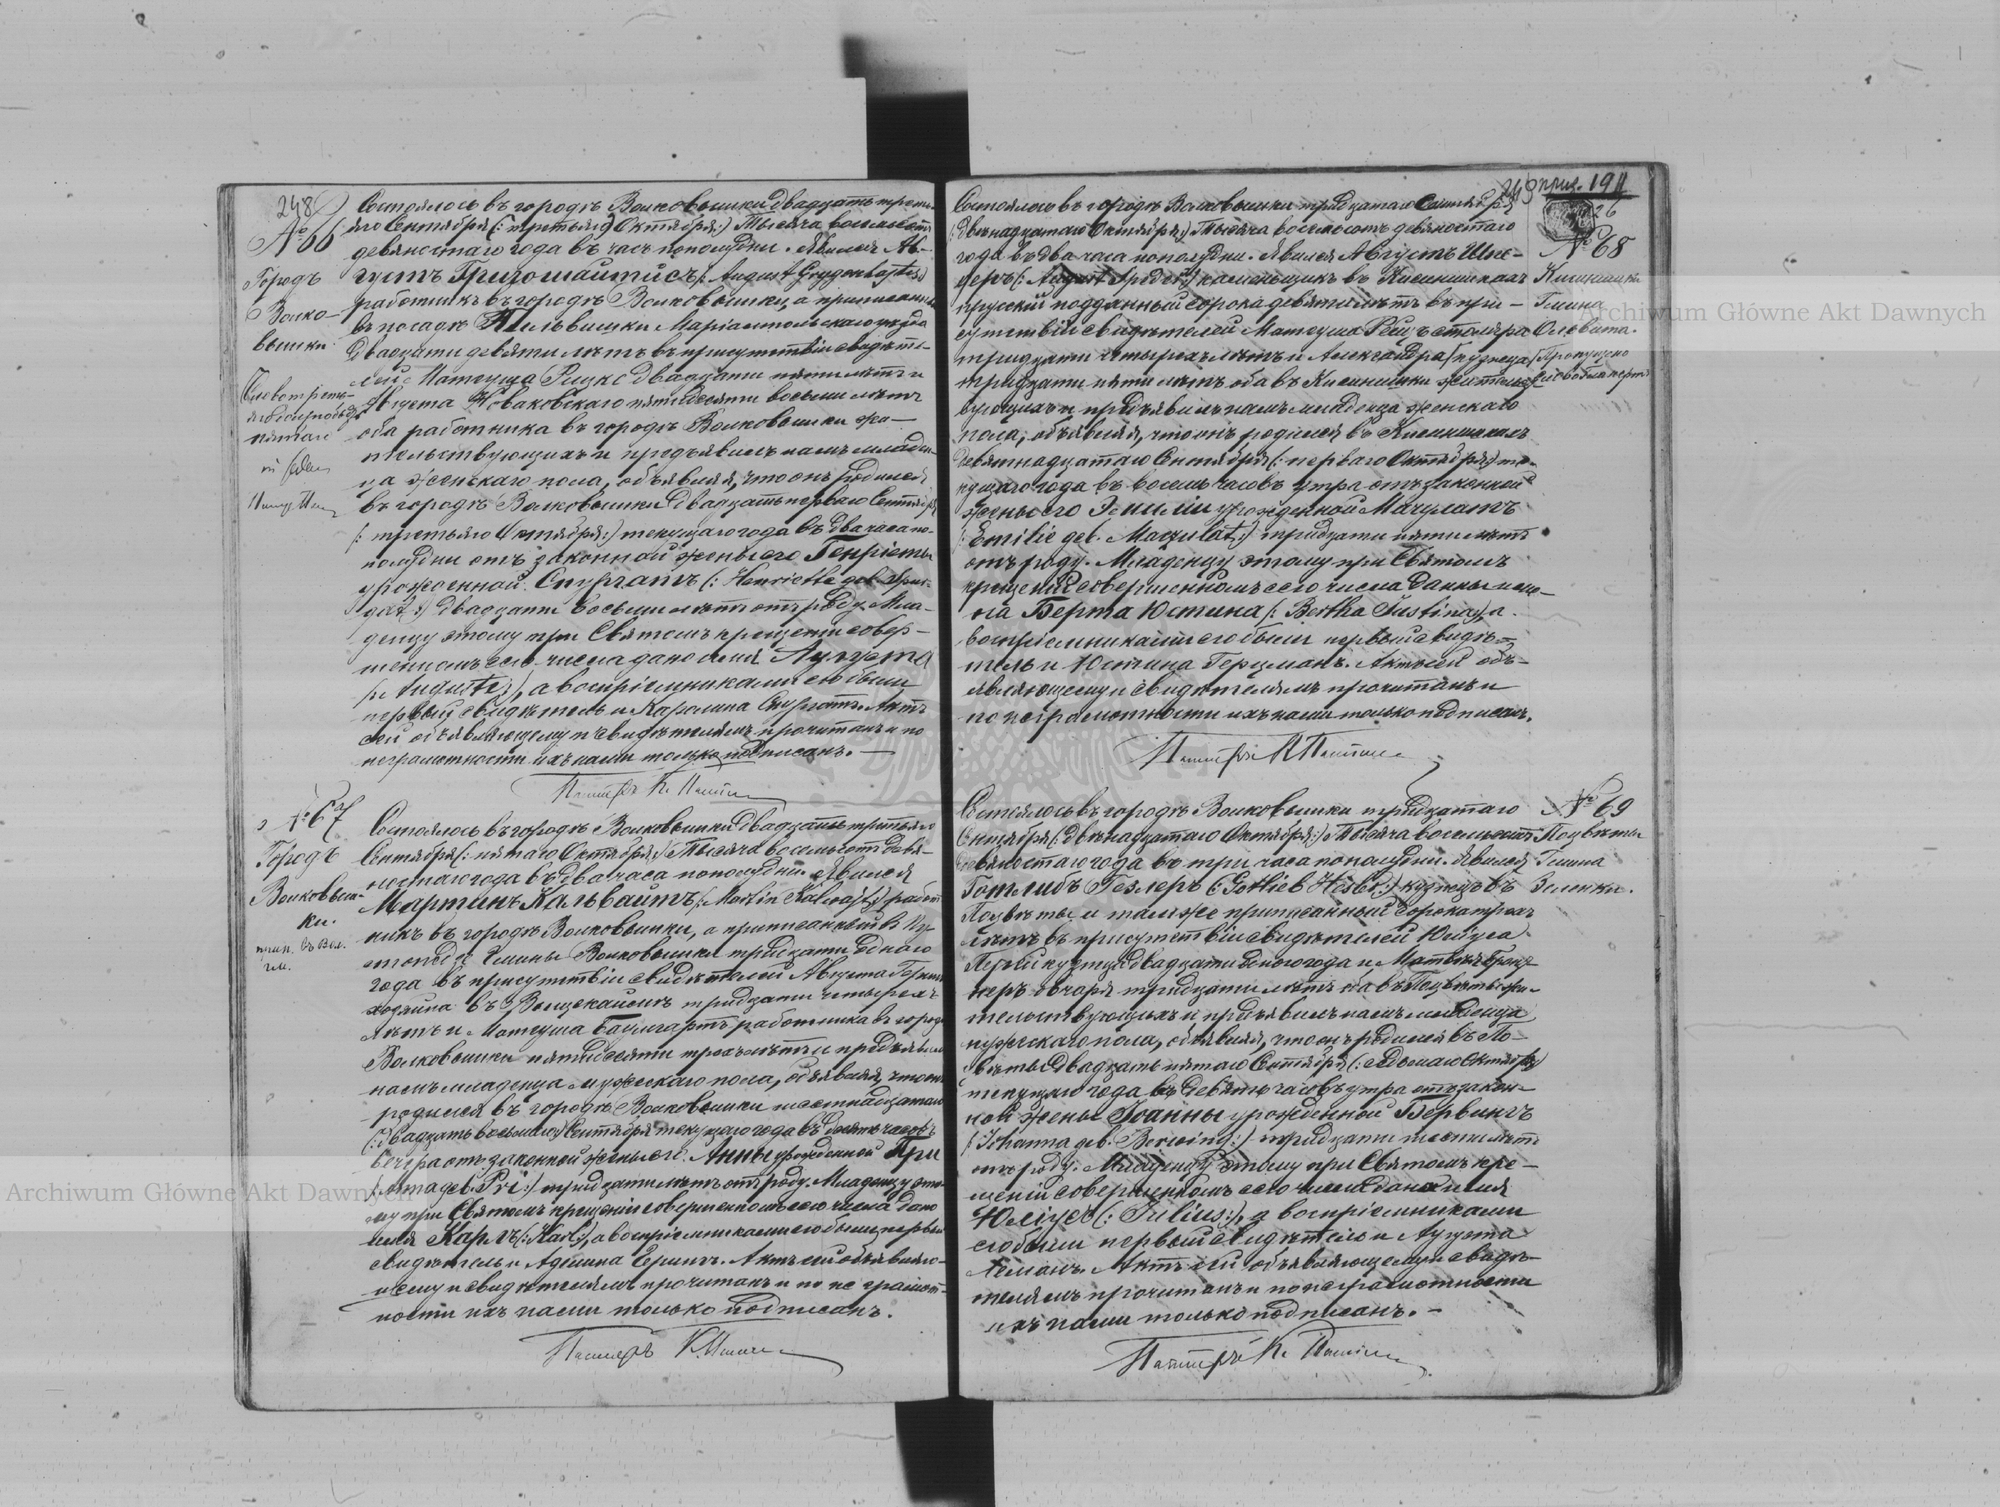 248
№ 66
Городъ
Волко-
вышки
Состоялось въ городѣ Волковышки двадцать треть-
яго Сентября (: пятаго Октября:) Тысяча восемьсотъ
девяностаго года въ часъ пополудни. Явился Ав-
густъ Григошайтисъ (: August Grygoszajtis:)
работникъ въ городѣ Волковышки, а приписанный
въ посадѣ Пильвишки Маріампольскаго уѣзда
двадцати девяти лѣтъ въ присутствіи свидѣте-
лей Матеуша Рицко двадцати пяти лѣтъ и
Августа Новаковскаго пятидесяти восьми лѣтъ
оба работника въ городѣ Волковышки жи-
тельствующихъ и предъявилъ намъ младен-
ца женскаго пола, объявляя, что онъ родился
въ городѣ Волковышки двадцать перваго Сентября
(: третьяго Октября:) текущаго года въ два часа по-
полудни отъ законной жены его Генріеты
урожденной Спургатъ (: Henriette geb. Spur-
gat:) двадцати восьми лѣтъ отъ роду. Мла-
денцу этому при Святомъ крещеніи совер-
шенномъ сего числа дано имя Аугуста
(: Auguste:), а воспріемниками его были
первый свидѣтель и Каролина Спургатъ. Актъ
сей объявляющему и свидѣтелямъ прочитанъ и по
неграмотности ихъ нами только подписанъ. —
Пасторъ К.
№ 67
Городъ
Волковыш-
ки.
Состоялось въ городѣ Волковышки двадцать третьяго
Сентября (: пятаго Октября:) Тысяча восемьсотъ девя-
ностаго года въ два часа пополудни. Явился
Мартинъ Кальвайтъ (: Martin Kalwajt:) работ-
никъ въ городѣ Волковышки, а приписанный въ
гмины Волковышки тридцати одного
года въ присутствіи свидѣтелей Августа
хозяина въ тридцати четырехъ
лѣтъ и Матеуша Баумгартъ работника въ городѣ
Волковышки пятидесяти трехъ лѣтъ и предъявилъ
намъ младенца мужескаго пола, объявляя, что онъ
родился въ городѣ Волковышки шестнадцатаго
(: двадцать восьмаго:) Сентября текущаго года въ десять часовъ
вечера отъ законной жены его Анны урожденной При
(: Anna geb. Pri:) тридцати лѣтъ отъ роду. Младенцу это-
му при Святомъ крещеніи совершенномъ сего числа дано
имя Карлъ (: Karl:), а воспріемниками его были первый
свидѣтель и Аделина Актъ сей объявляю-
щему и свидѣтелямъ прочитанъ и по неграмот-
ности ихъ нами только подписанъ.
Пасторъ К.
249
прил. 1911
26
№ 68
Гмина
Ольвита.
Состоялось въ городѣ Волковышки тридцатаго Сентября
(: двѣнадцатаго Октября:) Тысяча восемьсотъ девяностаго
года въ два часа пополудни. Явился Августъ Шпе-
деръ (: August Speder:) каменьщикъ въ
прусскій подданный сорока девяти лѣтъ въ при-
сутствіи свидѣтелей Матеуша столяра
тридцати четырехъ лѣтъ и Александра кузнеца
тридцати пяти лѣтъ оба въ жительст-
вующихъ и предъявилъ намъ младенца женскаго
пола, объявляя, что онъ родился въ
девятнадцатаго Сентября (: перваго Октября:) те-
кущаго года въ восемь часовъ утра отъ законной
жены его Эмиліи урожденной Мачулатъ
(: Emilie geb. Maczulat:) тридцати пяти лѣтъ
отъ роду. Младенцу этому при Святомъ
крещеніи совершенномъ сего числа даны име-
на Берта Юстина (: Bertha Justina:), а
воспріемниками его были первый свидѣ-
тель и Юстина Герцманъ. Актъ сей объ-
являющему и свидѣтелямъ прочитанъ и
по неграмотности ихъ нами только подписанъ.
Пасторъ К.
№ 69
Подвѣты
Гмина
Зеленки.
Состоялось въ городѣ Волковышки тридцатаго
Сентября (: двѣнадцатаго Октября:) Тысяча восемьсотъ
девяностаго года въ три часа пополудни. Явился
Готлибъ Геслеръ (: Gottlieb Hesler:) кузнецъ въ
и тамъ же приписанный сорока трехъ
лѣтъ въ присутствіи свидѣтелей Юліуса
кузнеца двадцати одного года и
овчаря тридцати лѣтъ оба въ жи-
тельствующихъ и предъявилъ намъ младенца
мужескаго пола, объявляя, что онъ родился въ По-
двѣты двадцать пятаго Сентября (: седьмаго Октября:)
текущаго года въ девять часовъ утра отъ закон-
ной жены Іоанны урожденной Бервингъ
(: Johanna geb. Berwing:) тридцати шести лѣтъ
отъ роду. Младенцу этому при Святомъ кре-
щеніи совершенномъ сего числа дано имя
Юліусъ (: Julius:), а воспріемниками
его были первый свидѣтель и Аугуста
Леманъ. Актъ сей объявляющему и свидѣ-
телямъ прочитанъ и по неграмотности
ихъ нами только подписанъ. —
Пасторъ К.
Archiwum Główne Akt Dawnych
Archiwum Główne Akt Dawnych